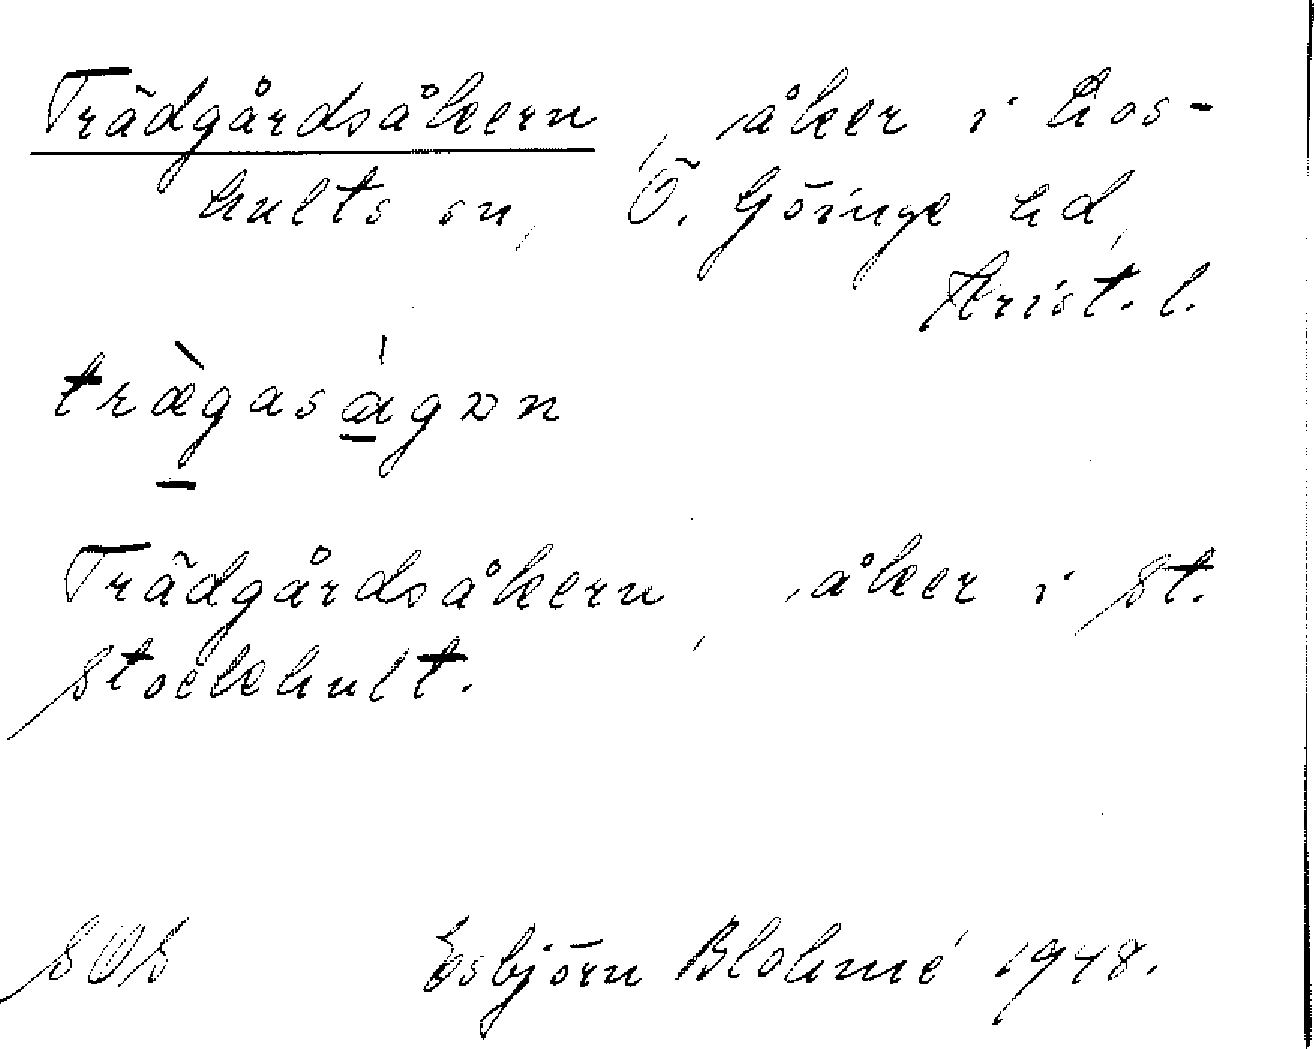 Trädgårdsåkern, åker i Hos-
hults sn, Ö. Göinge hd,
Krist. l.
træ̀gaságɒn
Trädgårdsåkern, åker i St.
Stockhult.
Esbjörn Blohmé 1948.